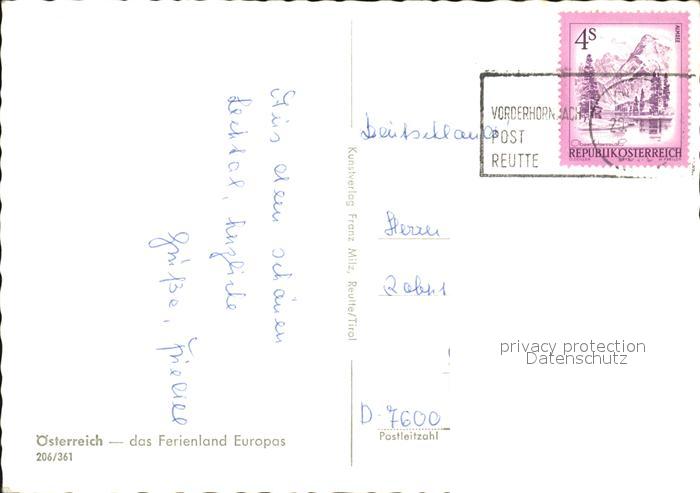 4S
ALMSEE
VORDERHORNBACH,
POST
REUTTE
REPUBLIK ÖSTERREICH
Aus dem schönen
Lechtal, herzliche
Grüße,
Kunstverlag Franz Milz, Reutte/Tirol
Deutschland
Herrn
D-7600
Postleitzahl
privacy protection
Datenschutz
Österreich — das Ferienland Europas
206/361